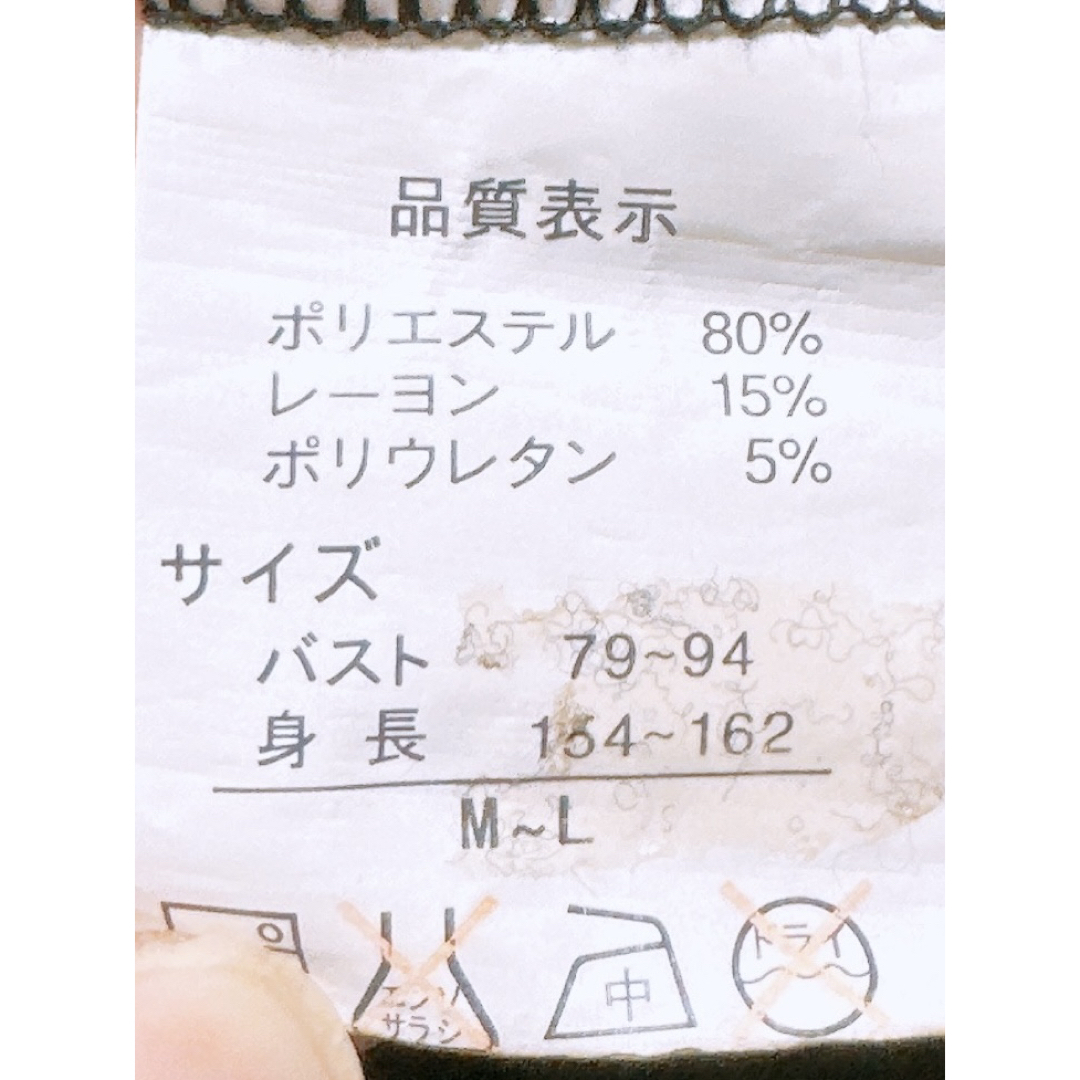 品質表示
ポリエステル 80%
レーヨン 15%
ポリウレタン 5%
サイズ
バスト 79~94
身長 154~162
M~L
エンソ
サラシ
中
ドライ